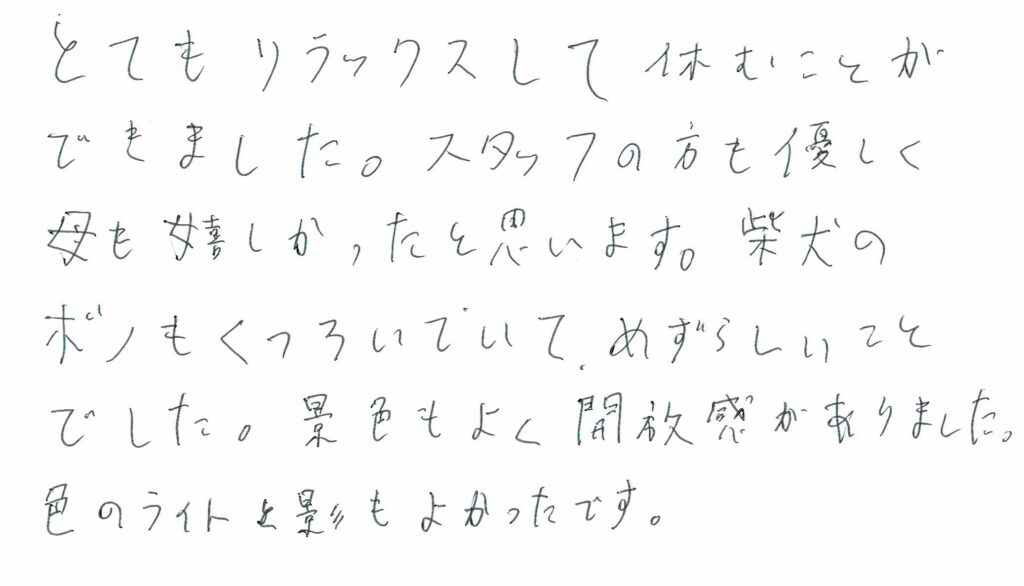 とてもリラックスして休むことが
できました。スタッフの方も優しく
母も嬉しかったと思います。柴犬の
ボンもくつろいでいて、めずらしいこと
でした。景色もよく開放感がありました。
色のライトと影もよかったです。